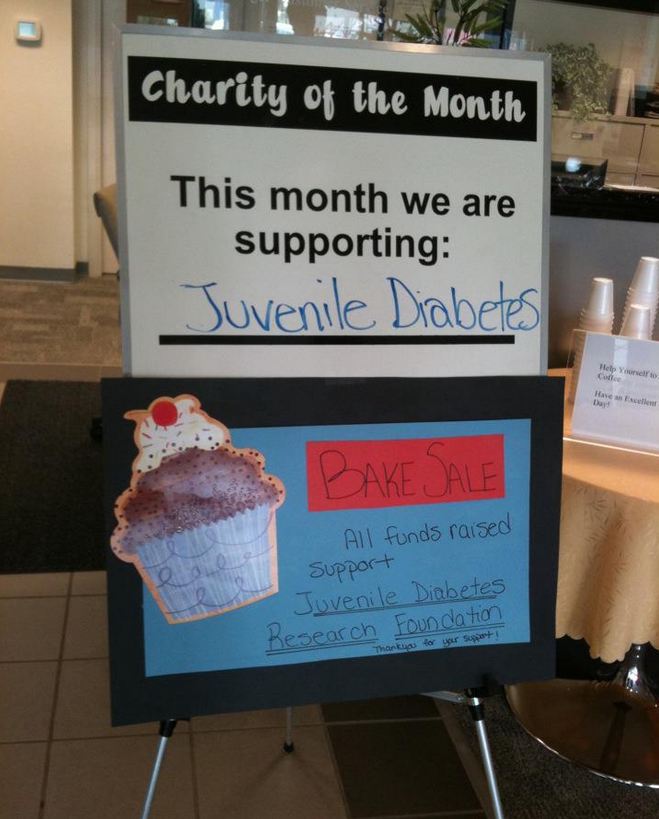 Charity of the Month
This month we are
supporting:
Juvenile Diabetes
BAKE SALE
All funds raised
support
Juvenile Diabetes
Research Foundation
Thankyou for your support!
Help Yourself to
Coffee
Have an Excellent
Day!